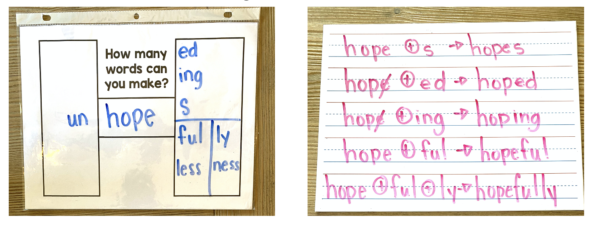 How many
words can
you make?
un
hope
ed
ing
s
ful
ly
less
ness
hope + s → hopes
hope + ed → hoped
hope + ing → hoping
hope + ful → hopeful
hope + ful + ly → hopefully